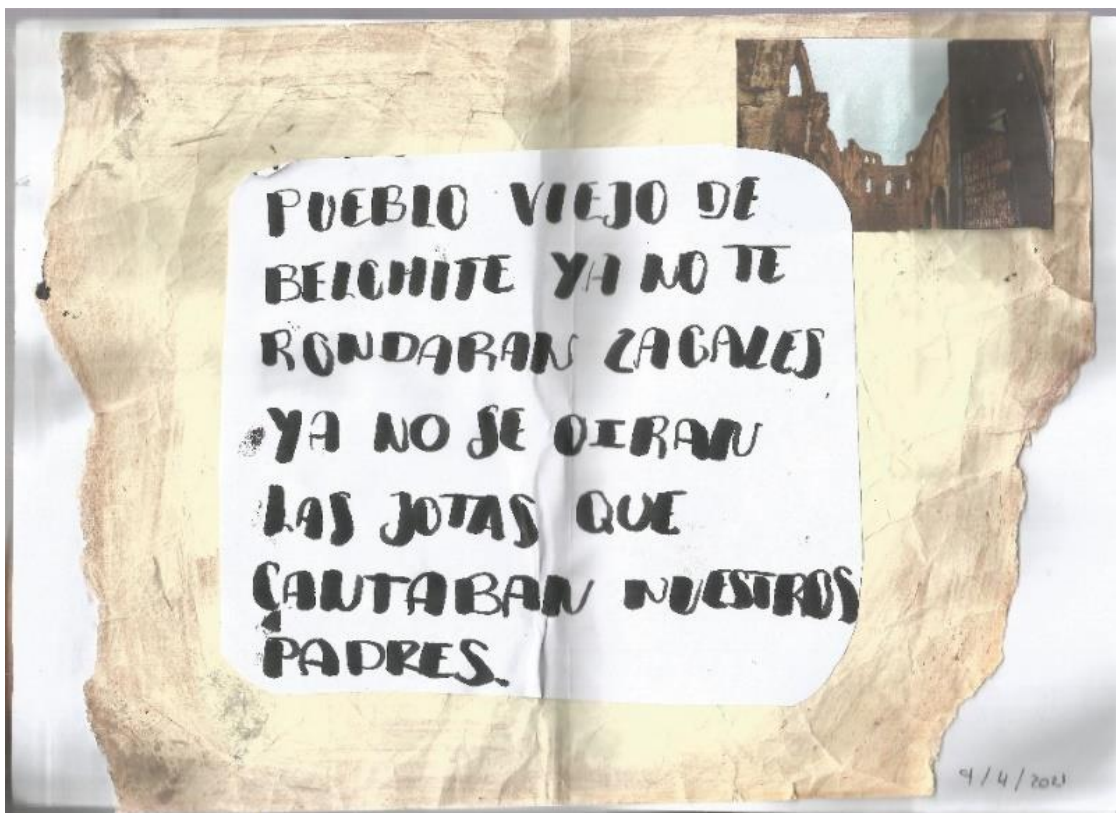 PUEBLO VIEJO DE
BELCHITE YA NO TE
RONDARAN ZAGALES
YA NO SE OIRAN
LAS JOTAS QUE
CANTABAN NUESTROS
PADRES.
9/4/2021